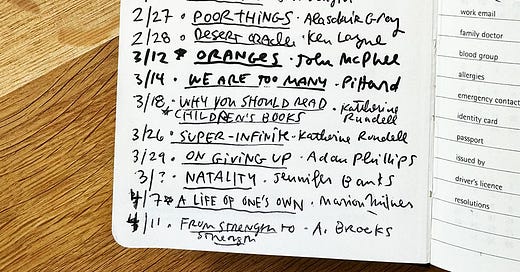 2/27 · POOR THINGS · Alasdair Gray
2/28 · DESERT ORACLE · Ken Layne
3/12 * ORANGES · John McPhee
3/14 · WE ARE TOO MANY · Pittard
3/18 · WHY YOU SHOULD READ
* CHILDREN'S BOOKS · Katherine
Rundell
3/26 · SUPER-INFINITE - Katherine Rundell
3/29 · ON GIVING UP · Adam Phillips
3/? · NATALITY · Jennifer Banks
4/7 * A LIFE OF ONE'S OWN · Marion Milner
4/11 · FROM STRENGTH TO - A. Brooks
STRENGTH
work email
family doctor
blood group
allergies
emergency contact
identity card
passport
issued by
driver's licence
resolutions